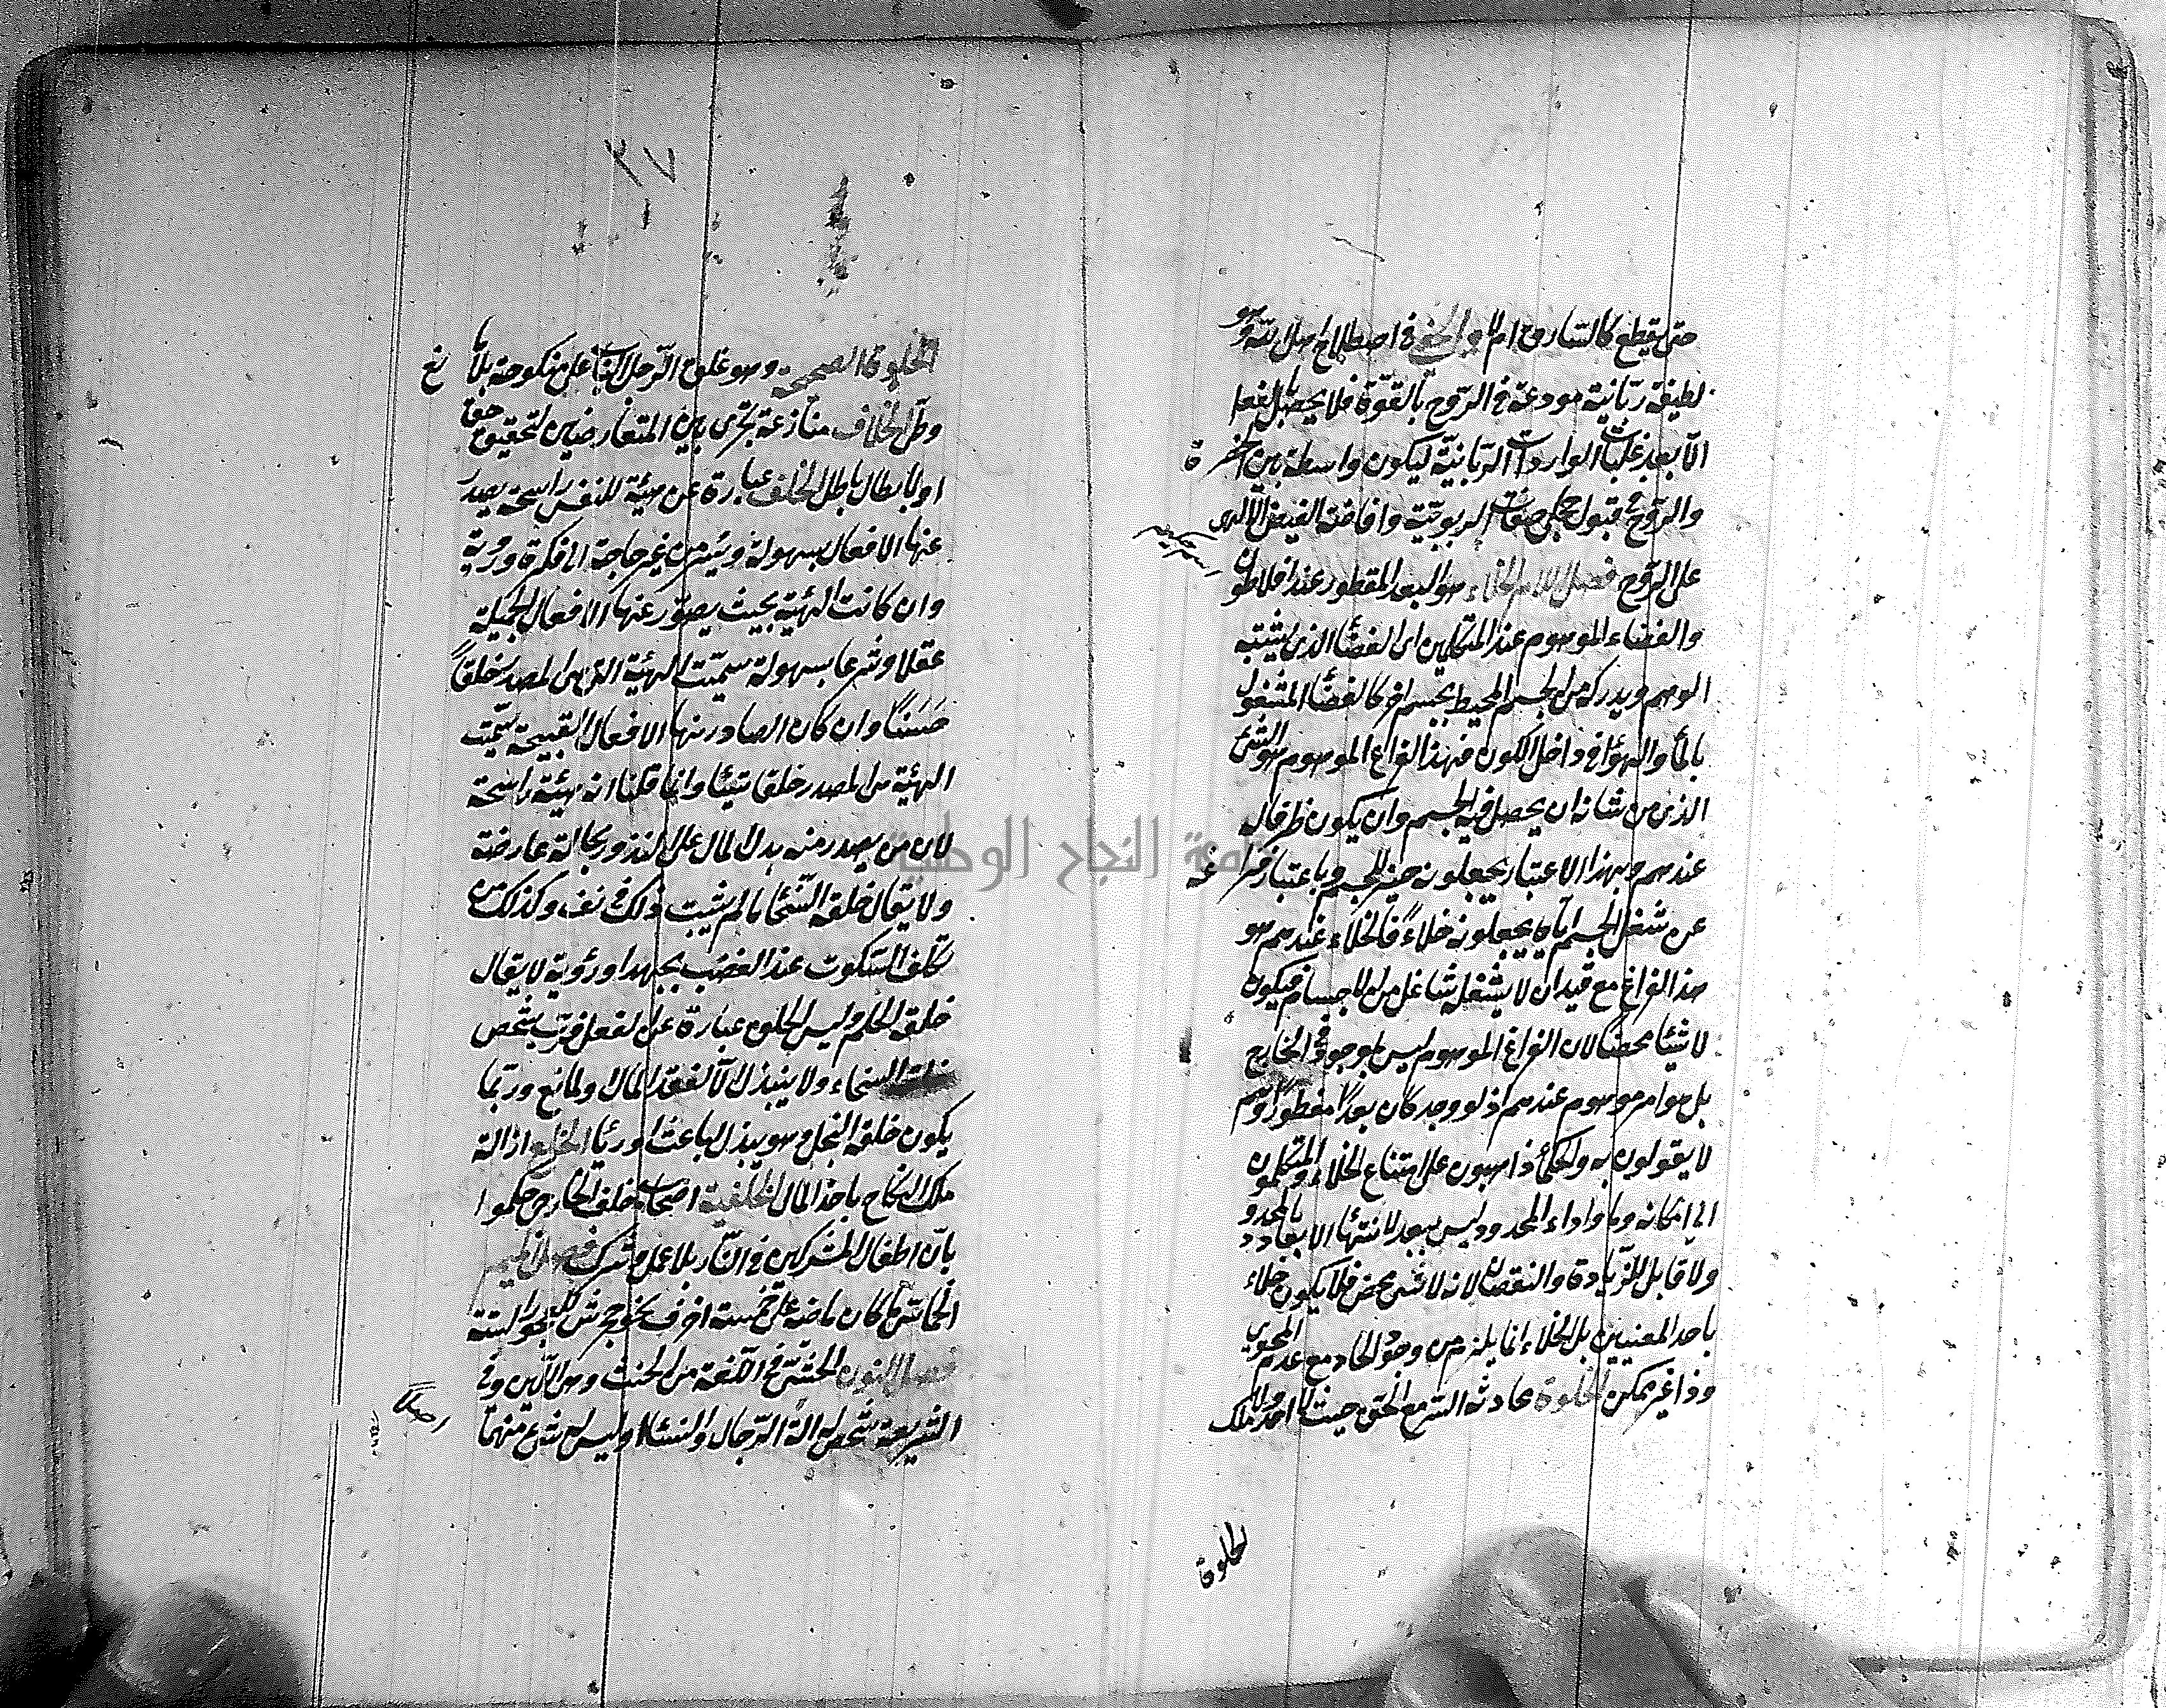 حتى يقطع كالسارق ام لا الخفي في اصطلاح اهل الله هو
لطيفة ربانية مودعة في الروح بالقوة فلا يحصل بالفعل
الا بعد غلبات الواردات الربانية ليكون واسطة بين الحضرة
والروح في قبول تجلي صفات الربوبية وافاضة الفيض الالهي
على الروح فصل اللام الخلاء هو البعد المفطور عند افلاطون
والفضاء الموهوم عند المتكلمين اى الفضأ الذى يثبته
الوهم ويدركه من الجسم المحيط بجسم اخر كالفضأ المشغول
بالمأ والهوأ في داخل الكون فهذا الفراغ الموهوم هو الشئ
الذى من شانه ان يحصل فيه الجسم وان يكون ظرفا له
عندهم وبهذا الاعتبار يجعلونه حيزا للجسم وباعتبار فراغه
عن شغل الجسم اياه يجعلونه خلاءً فالخلاء عندهم هو
هذا الفراغ مع قيد ان لا يشغله شاغل من الاجسام فيكون
لا شيئا محضا لان الفراغ الموهوم ليس بموجود في الخارج
بل هو امر موهوم عندهم اذ لو وجد كان بعدًا مفطورًا وهم
لا يقولون به والحكمأ ذاهبون على امتناع الخلاء والمتكلمون
الى امكانه وما وراء المحدد ليس ببعد لانتهأ الابعاد بالمحدد
ولا قابل للزيادة والنقصان لانه لا شئ محض فلا يكون خلاء
باحد المعنيين بل الخلاء انما يلزم من وجود الحاوى مع عدم المحوي
وذا غير ممكن الخلوة محادثة السر مع الحق حيث لا احد ولا ملك
الخلوة
٢٧
الخلوة الصحيحة وهو غلق الرجل الباب على منكوحته بلا مانع
وطئ الخلاف منازعة تجرى بين المتعارضين لتحقيق حق
او لابطال باطل الخلق عبارة عن هيئة للنفس راسخة يصدر
عنها الافعال بسهولة ويسر من غير حاجة الى فكر ة وروية
وان كانت الهئية بحيث يصدر عنها الافعال الجميلة
عقلا وشرعا بسهولة سميت الهيئة التى هى المصدر خلقاً
حَسَناً وان كان الصادر منها الافعال القبيحة سميت
الهيئة هى المصدر خلقا سيئا وانما قلنا انه هيئة راسخة
لان من يصدر منه بذل المال على الندور بحالة عارضة
ولا يقال خلقه السخأ ما لم يثبت ذلك في نفسه وكذلك من
تكلف السكوت عند الغضب بجهد او رؤية لا يقال
خلقه الحلم وليس الخلق عبارة عن الفعل فرب شخص
خلقه السخاء ولا يبذل اما لفقد المال او لمانع وربما
يكون خلقه البخل وهو يبذل لباعث او رئيا الخلع ازالة
ملك النكاح باخذ المال الخلفية اصحاب خلف الخارجى حكموا
بان اطفال المشركين في النار بلا عمل وشرك فصل الميم
الخماسى ما كان ماضيه على خمسة احرف نحو جحمرش للعجوز المسنة
فصل النون الخنثى في اللغة من الخنث وهو اللين وفي
الشريعة شخص له الة الرجال والنسأ او ليس له شئ منهما
اصلًا